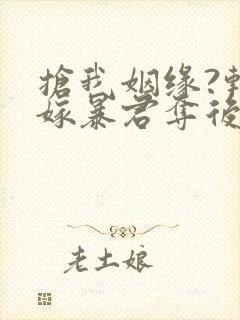 搶我姻缘?
嫁暴君夺後
老土娘